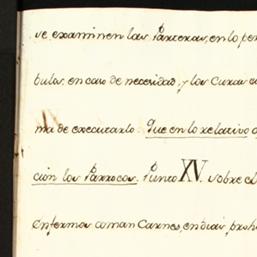 se examinen las Parteras, en lo per
bulos, en caso de necesidad, y los Curas
ma de executarlo. Que en lo relativo
cion los Parrocos. Punto XV. sobre el
enfermos coman Carnes, en dias proh